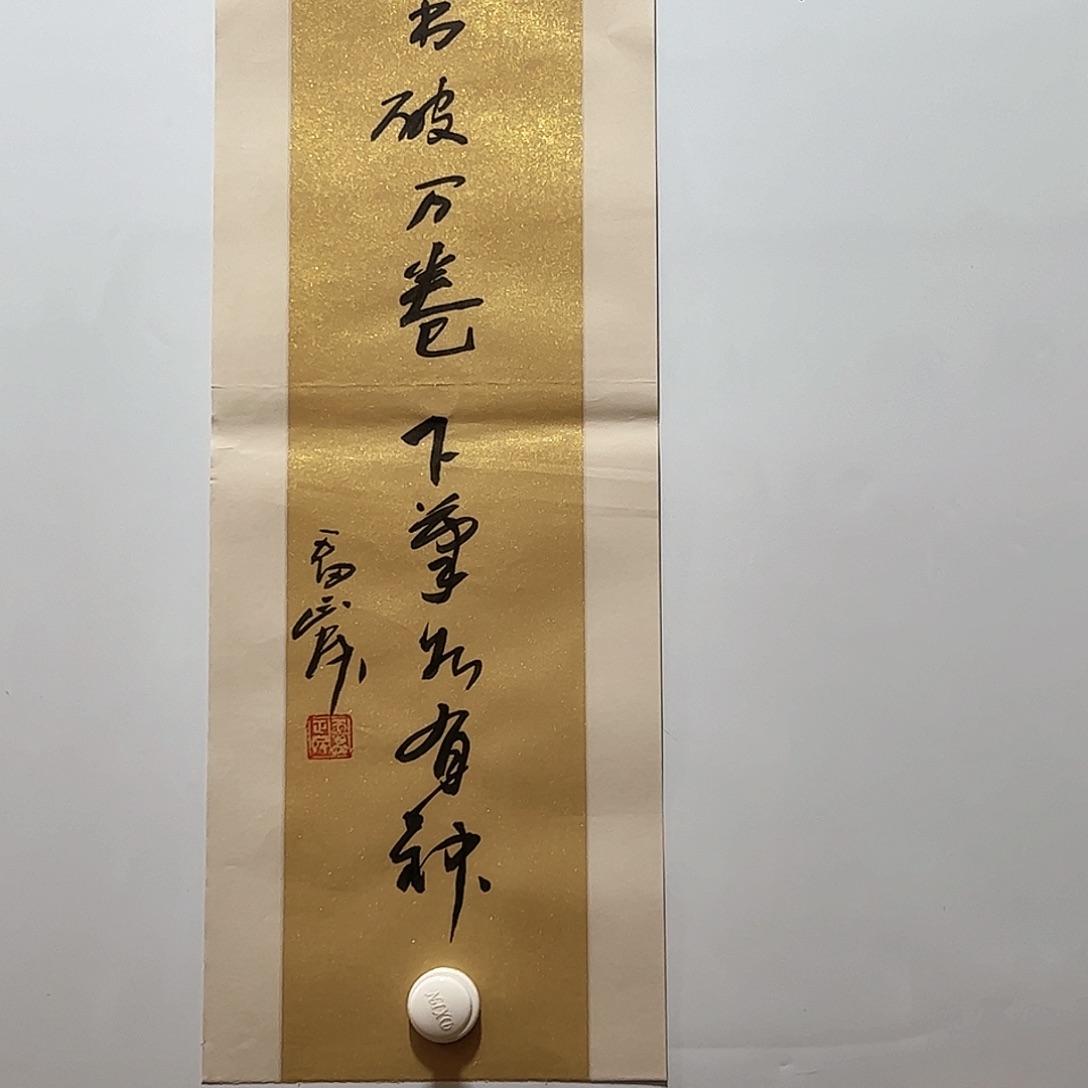 书破万卷下笔如有神
MIXO